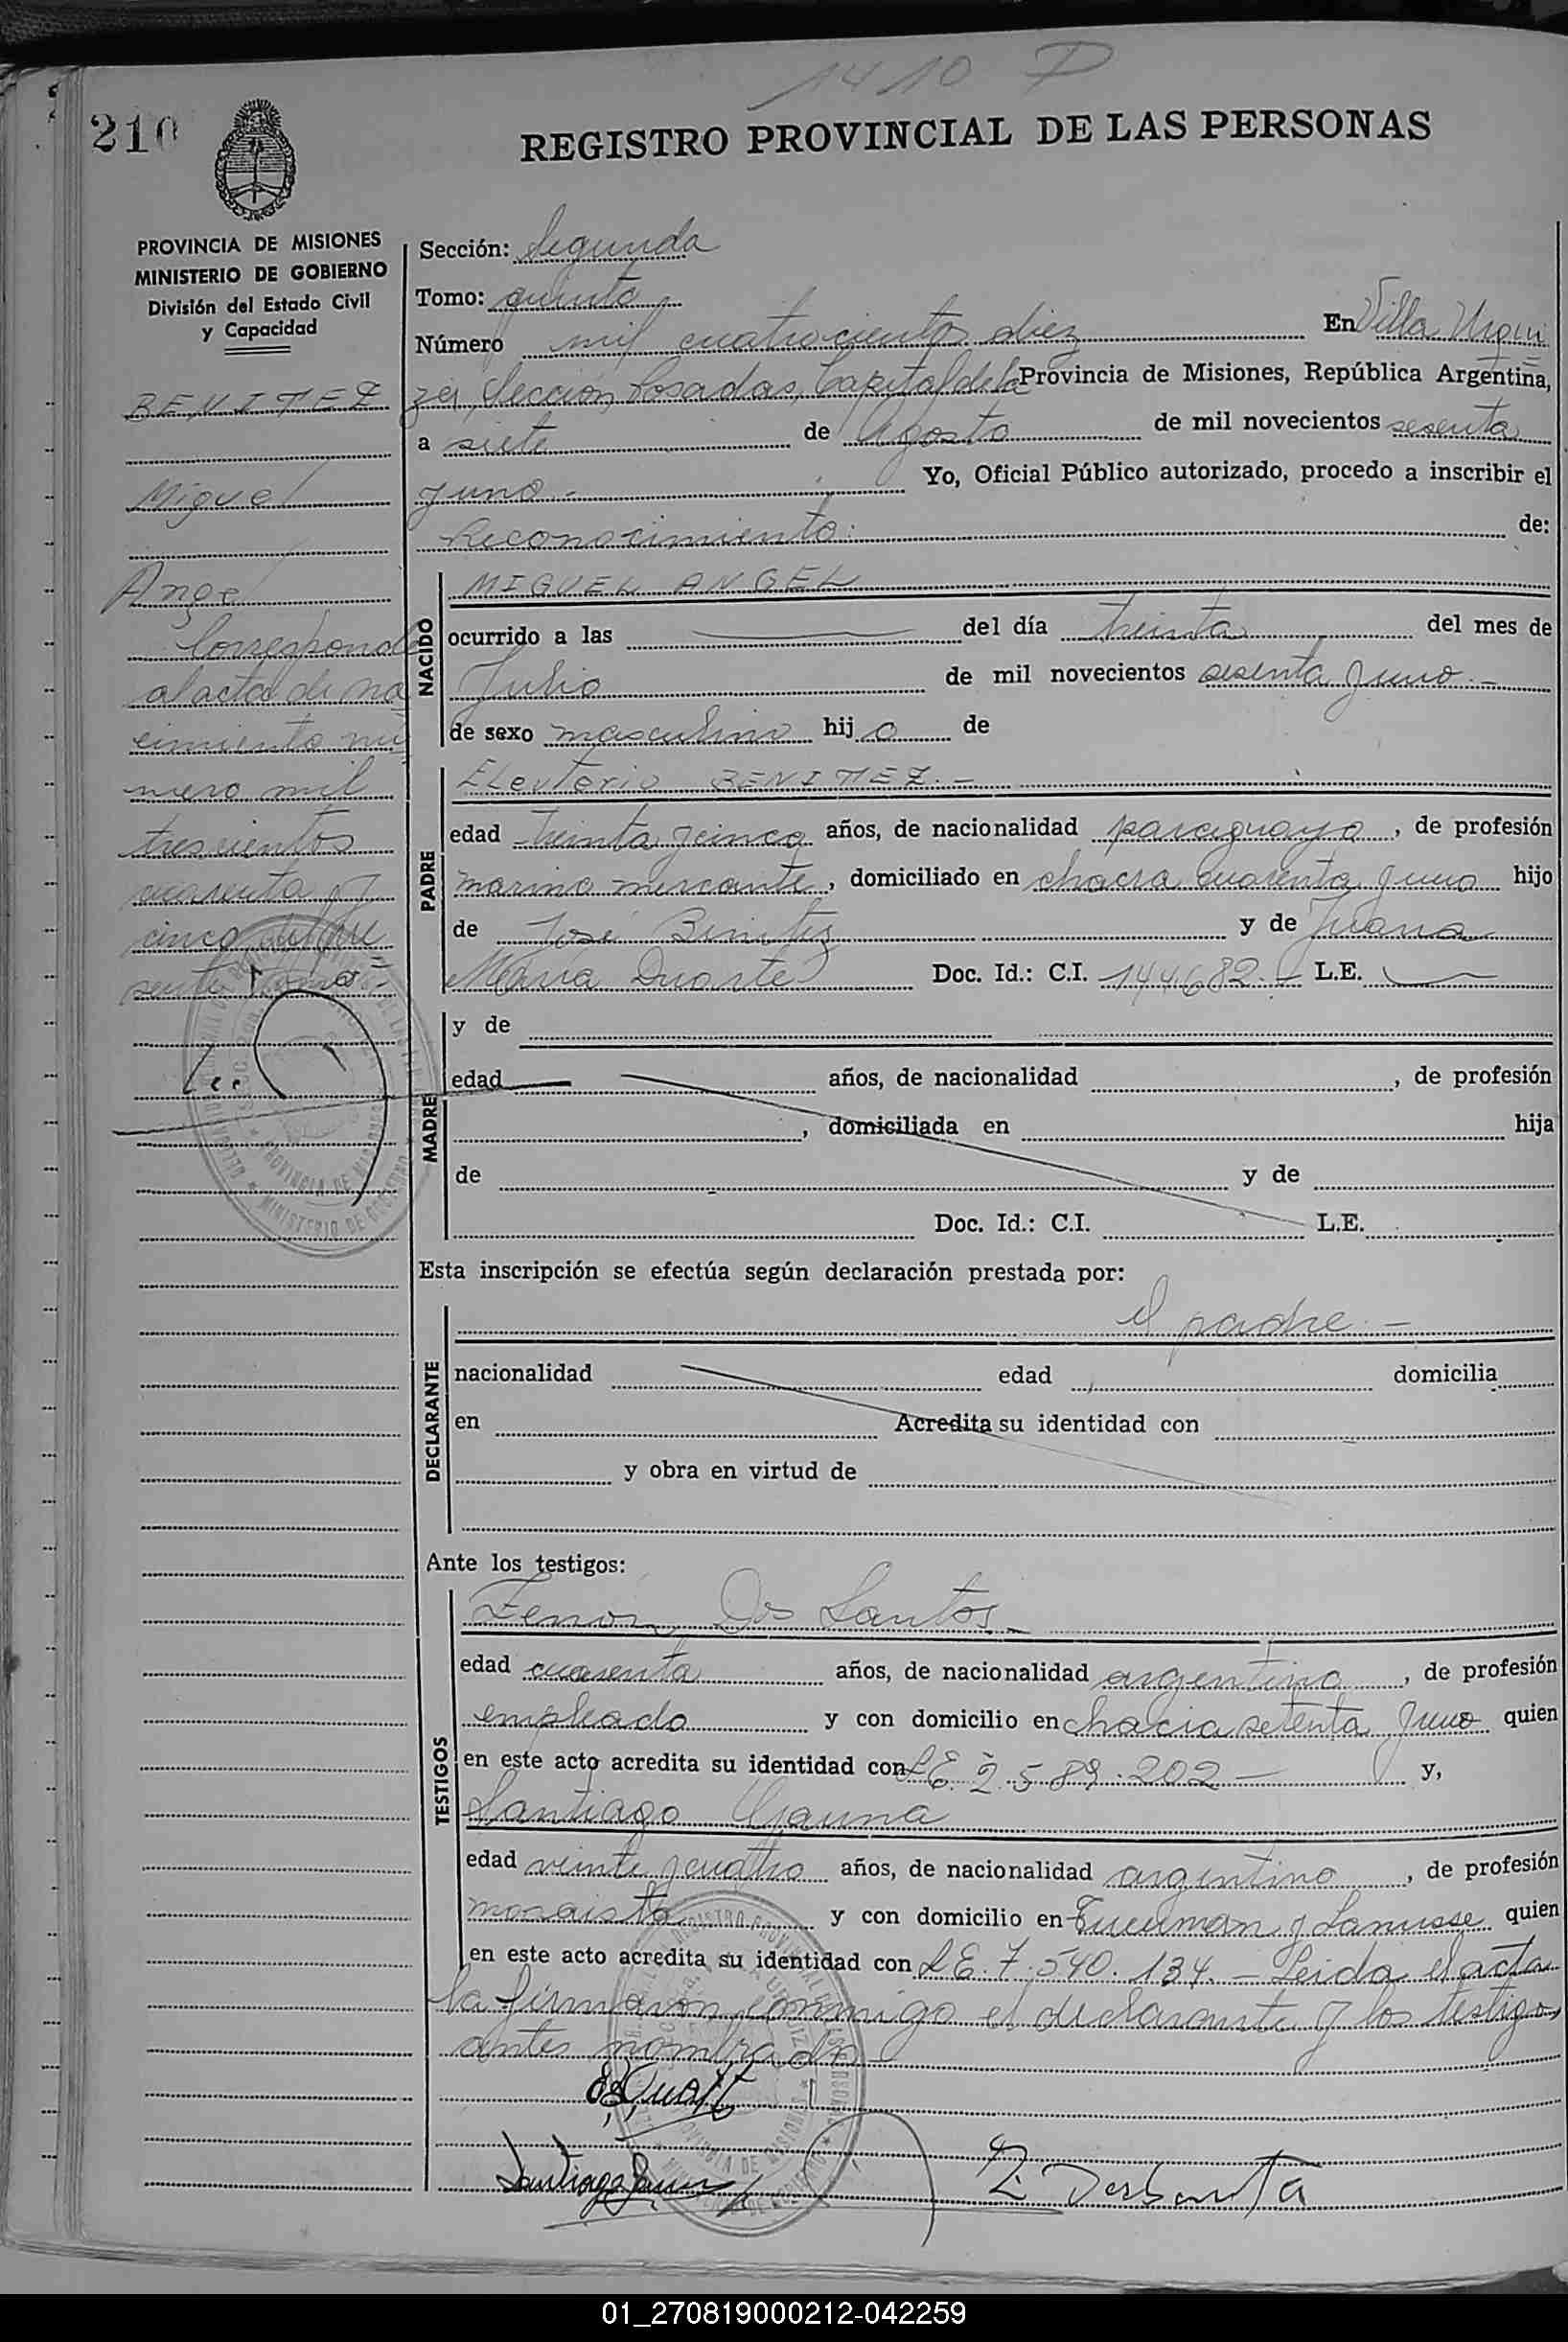 1410 D
210
REGISTRO PROVINCIAL DE LAS PERSONAS
PROVINCIA DE MISIONES
MINISTERIO DE GOBIERNO
División del Estado Civil
y Capacidad
BENITEZ
Miguel
Angel
Corresponde
al acta de na
cimiento nú
mero mil
trescientos
cuarenta y
cinco del pre
sente tomo -
Sección: Segunda
Tomo: quinto
Número mil cuatrocientos diez En Villa Urqui
za, Sección Posadas, Capital de la Provincia de Misiones, República Argentina,
a siete de Agosto de mil novecientos sesenta
y uno.- Yo, Oficial Público autorizado, procedo a inscribir el
Reconocimiento: de:
NACIDO
MIGUEL ANGEL
ocurrido a las del día treinta del mes de
Julio de mil novecientos sesenta y uno.-
de sexo masculino hijo de
PADRE
Eleuterio BENITEZ.-
edad treinta y cinco años, de nacionalidad paraguaya, de profesión
marino mercante, domiciliado en chacra cuarenta y uno hijo
de José Benitez y de Juana
María Duarte Doc. Id.: C.I. 144.682.- L.E.
MADRE
y de
edad años, de nacionalidad , de profesión
, domiciliada en hija
de y de
Doc. Id.: C.I. L.E.
Esta inscripción se efectúa según declaración prestada por:
DECLARANTE
el padre.-
nacionalidad edad domicilia
en Acredita su identidad con
y obra en virtud de
Ante los testigos:
TESTIGOS
Zenon Dos Santos
edad cuarenta años, de nacionalidad argentina, de profesión
empleado y con domicilio en chacra setenta y uno quien
en este acto acredita su identidad con LE 2.589.202 - y,
Santiago Gauna
edad veinte y cuatro años, de nacionalidad argentino, de profesión
mosaista y con domicilio en Tucuman y Lanusse quien
en este acto acredita su identidad con LE. 7.540.134.- Leida el acta
la firmaron conmigo el declarante y los testigos
antes nombrados
Santiago Gauna
01_270819000212-042259